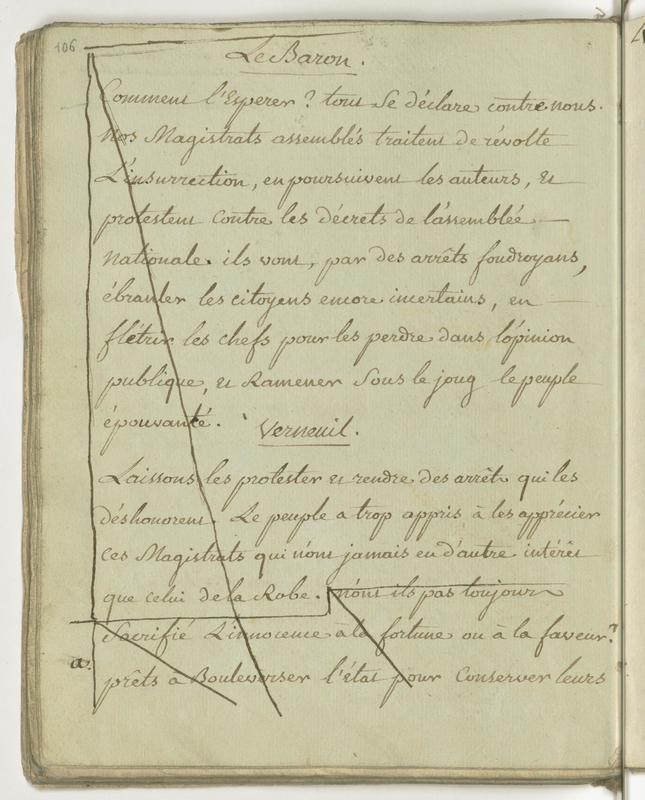 106
Le Baron.
Comment l'Esperer? tout se déclare contre nous.
Nos Magistrats assemblés traitent de révolte
L'insurrection, en poursuivent les auteurs, et
protestent contre les décrets de l'assemblée
Nationale. ils vont, par des arrêts foudroyans,
ébranler les citoyens encore incertains, en
flétrir les chefs pour les perdre dans l'opinion
publique, et Ramener sous le joug le peuple
épouvanté.
Verneuil.
Laissons les protester et rendre des arrêts qui les
déshonorent. Le peuple a trop appris à les apprécier
Ces Magistrats qui n'ont jamais eu d'autre intérêt
que celui de la Robe. n'ont ils pas toujours
Sacrifié L'innocence à la fortune ou à la faveur?
a.
prêts a Bouleverser l'état pour Conserver leurs